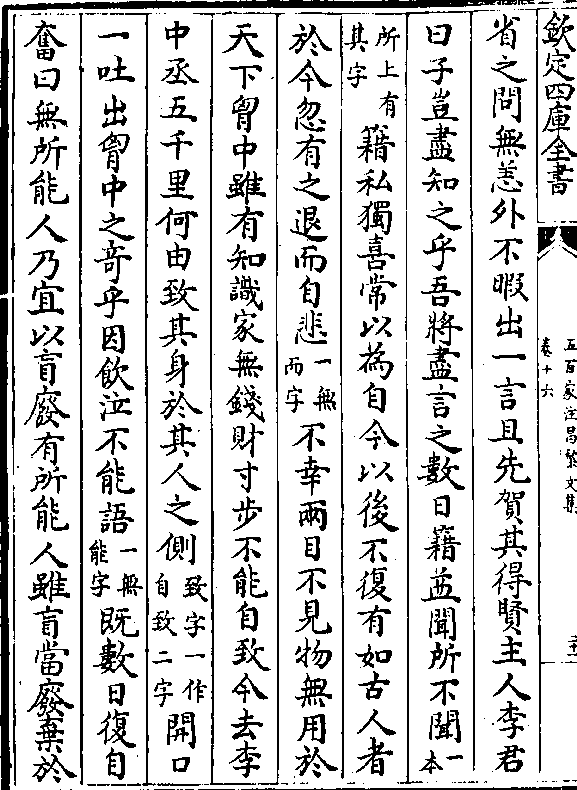 欽定四庫全書
五百家注昌黎文集
卷十六
省之問無恙外不暇出一言且先賀其得賢主人李君
曰子豈盡知之乎吾將盡言之數日籍益聞所不聞一本
所上有其字籍私獨喜常以為自今以後不復有如古人者
於今忽有之退而自悲一無而字不幸兩目不見物無用於
天下胷中雖有知識家無錢財寸步不能自致今去李
中丞五千里何由致其身於其人之側致字一作自致二字開口
一吐出胷中之奇乎因飲泣不能語一無能字既數日復自
奮曰無所能人乃宜以盲廢有所能人雖盲當廢棄於